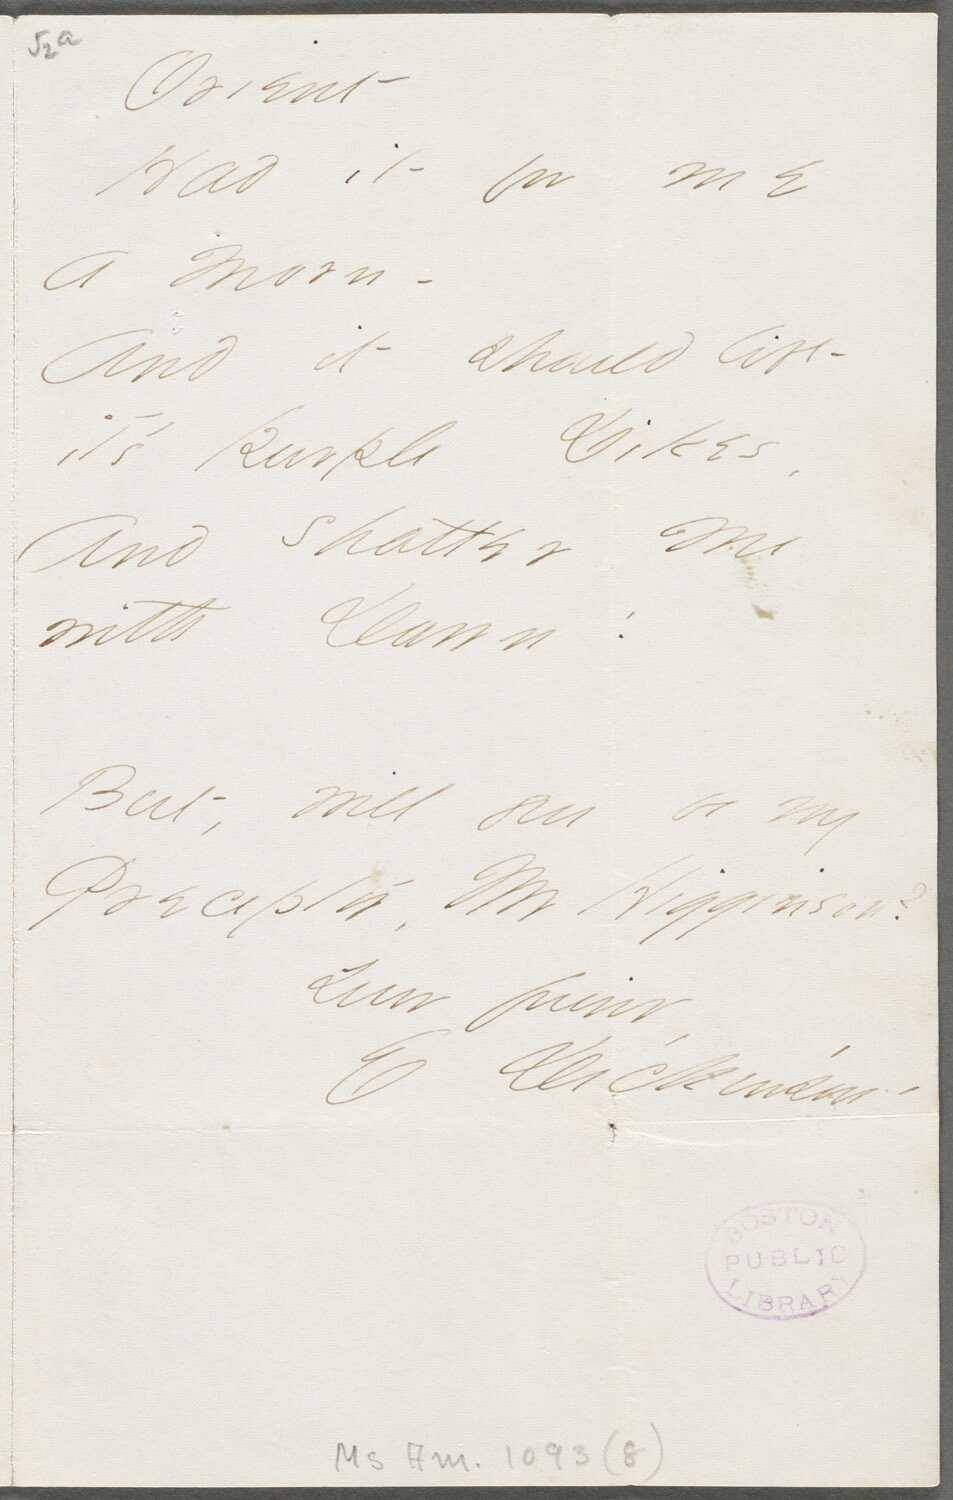 52a
Orient
Had it for me
a Morn -
And it should lift -
it's purple Dikes,
And shatter Me
with Dawn!
But, will you be my
Preceptor, Mr Higginson?
Your friend,
E Dickinson -
BOSTON
PUBLIC
LIBRARY
Ms Am. 1093 (8)